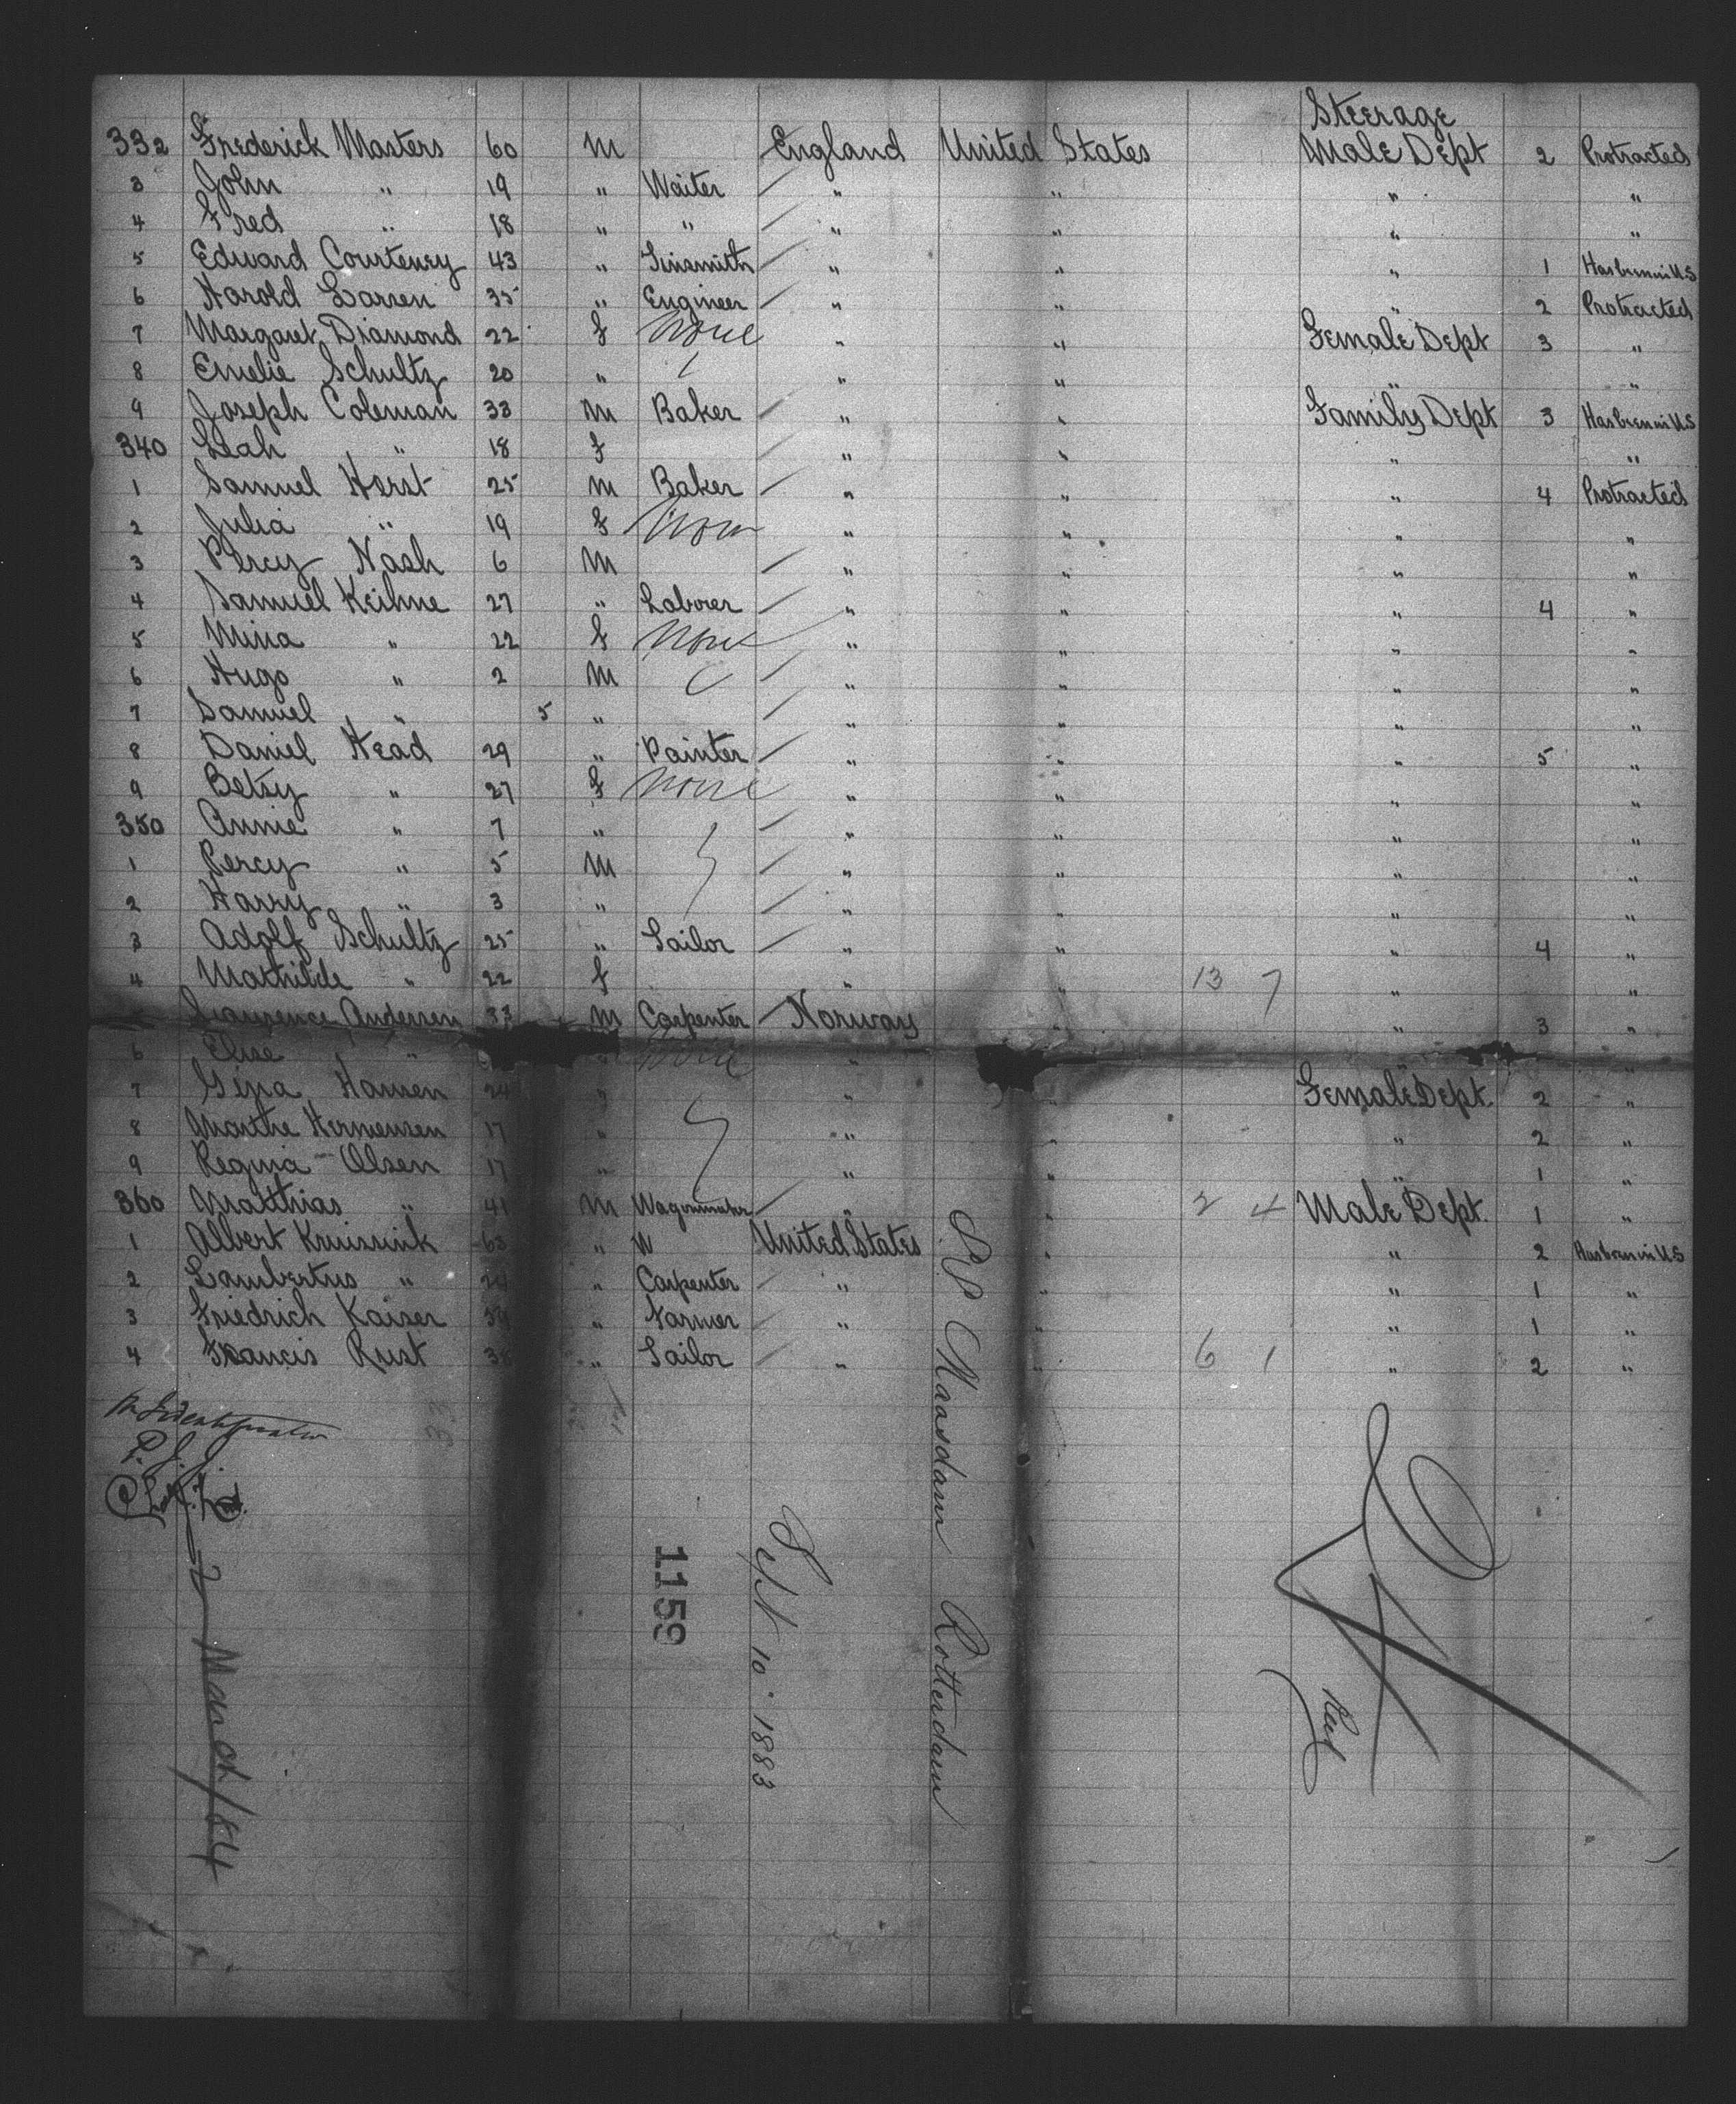 Steerage
332 Frederick Masters 60 M England United States Male Dept 2 Protracted
3 John " 19 " Waiter " " " "
4 Fred " 18 " " " " " "
5 Edward Courteney 43 " Tinsmith " " " 1 Has been in U.S
6 Harold Larsen 35 " Engineer " " " 2 Protracted
7 Margaret Diamond 22 f None " " Female Dept 3 "
8 Emelie Schultz 20 " " " " "
9 Joseph Coleman 33 M Baker " " Family Dept 3 Has been in U.S
340 Leah " 18 f " " " "
1 Samuel Horst 25 M Baker " " " 4 Protracted
2 Julia " 19 f None " " " "
3 Percy Nash 6 M " " " "
4 Samuel Keihne 27 " Laborer " " " 4 "
5 Mina " 22 f None " " " "
6 Hugo " 2 M " " " "
7 Samuel " 5 " " " " "
8 Daniel Head 29 " Painter " " " 5 "
9 Betsy " 27 f None " " " "
350 Annie " 7 " " " " "
1 Percy " 5 M " " " "
2 Harry " 3 " " " " "
3 Adolf Schultz 25 " Sailor " " " 4 "
4 Mathilde " 22 f " " 13 7 " "
Laurence Andersen 33 M Carpenter Norway " " 3 "
6 Elise " " None " "
7 Gina Hansen 24 " " " Female Dept. 2 "
8 Marthe Hermensen 17 " " " " 2 "
9 Regina Olsen 17 " " " " 1 "
360 Matthias " 41 M Wagonmaker " " 2 4 Male Dept. 1 "
1 Albert Kruisink 63 " " United States " " 2 Has been in U.S
2 Lambertus " 24 " Carpenter " " " 1 "
3 Friedrich Kaiser 59 " Farmer " " " 1 "
4 Francis Rust 38 " Sailor " " 6 1 " 2 "
March/84
1159
Sept 10. 1883
SS Maasdam Rotterdam